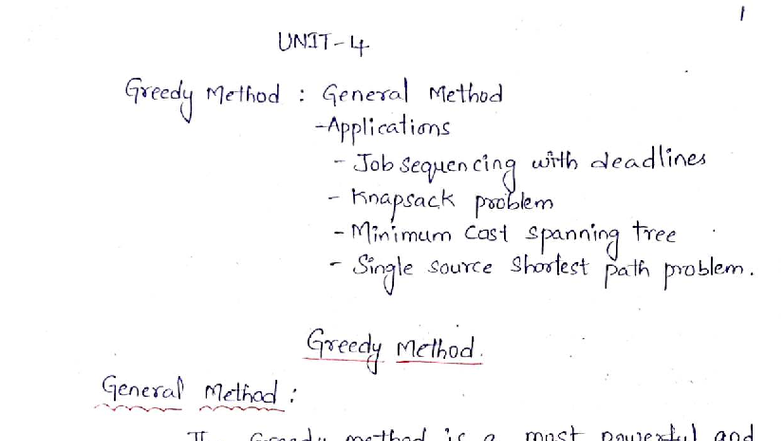 1
UNIT-4
Greedy Method : General Method
-Applications
- Job sequencing with deadlines
- Knapsack problem
- Minimum cost spanning tree
- Single source shortest path problem.
Greedy Method.
General Method :
Greedy method is a most powerful and